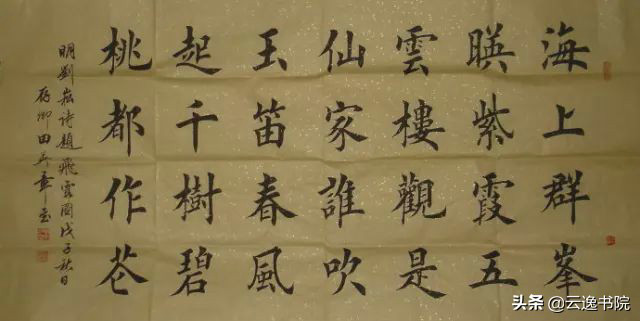 海上群峯
暎紫霞五
雲樓觀是
仙家誰吹
玉笛春風
起千樹碧
桃都作花
明劉崧詩題飛雲圖戊子秋日
存卿田英章書
头条 @云逸书院